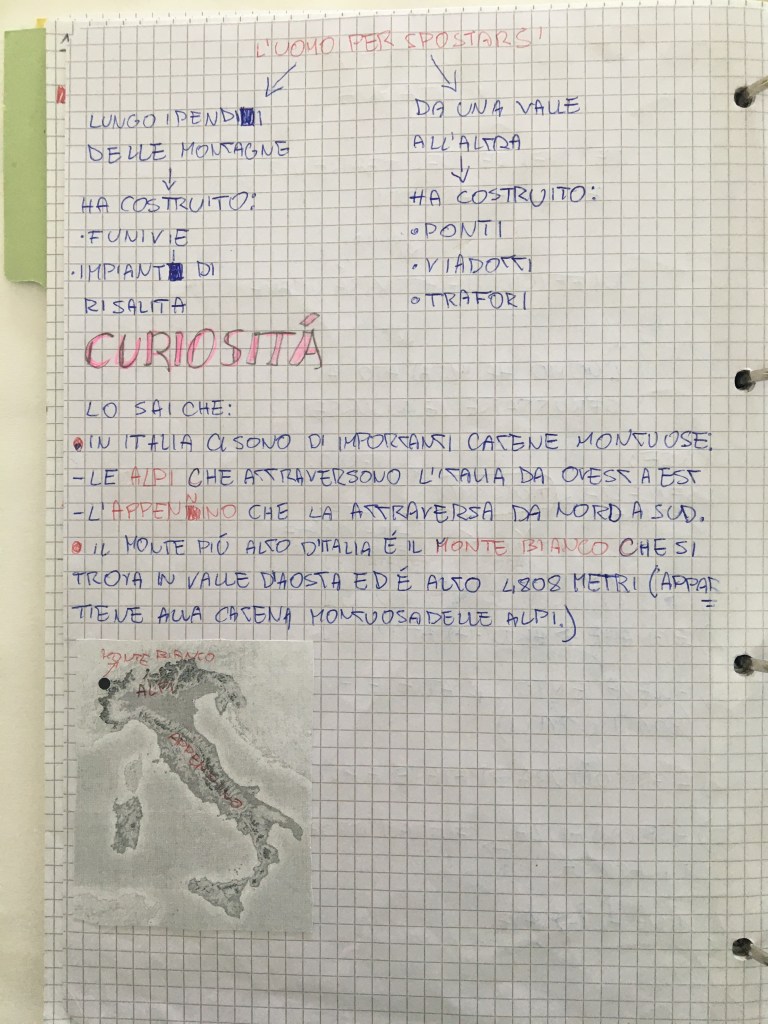 L'UOMO PER SPOSTARSI
LUNGO I PENDII
DELLE MONTAGNE
HA COSTRUITO:
•FUNIVIE
•IMPIANTI DI
RISALITA
DA UNA VALLE
ALL'ALTRA
HA COSTRUITO:
•PONTI
•VIADOTTI
•TRAFORI
CURIOSITÁ
LO SAI CHE:
•IN ITALIA CI SONO DI IMPORTANTI CATENE MONTUOSE:
-LE ALPI CHE ATTRAVERSONO L'ITALIA DA OVEST A EST
-L'APPENNINO CHE LA ATTRAVERSA DA NORD A SUD.
•IL MONTE PIÚ ALTO D'ITALIA É IL MONTE BIANCO CHE SI
TROVA IN VALLE D'AOSTA ED É ALTO 4808 METRI (APPAR
TIENE ALLA CATENA MONTUOSA DELLE ALPI.)
MONTE BIANCO
ALPI
APPENNINO